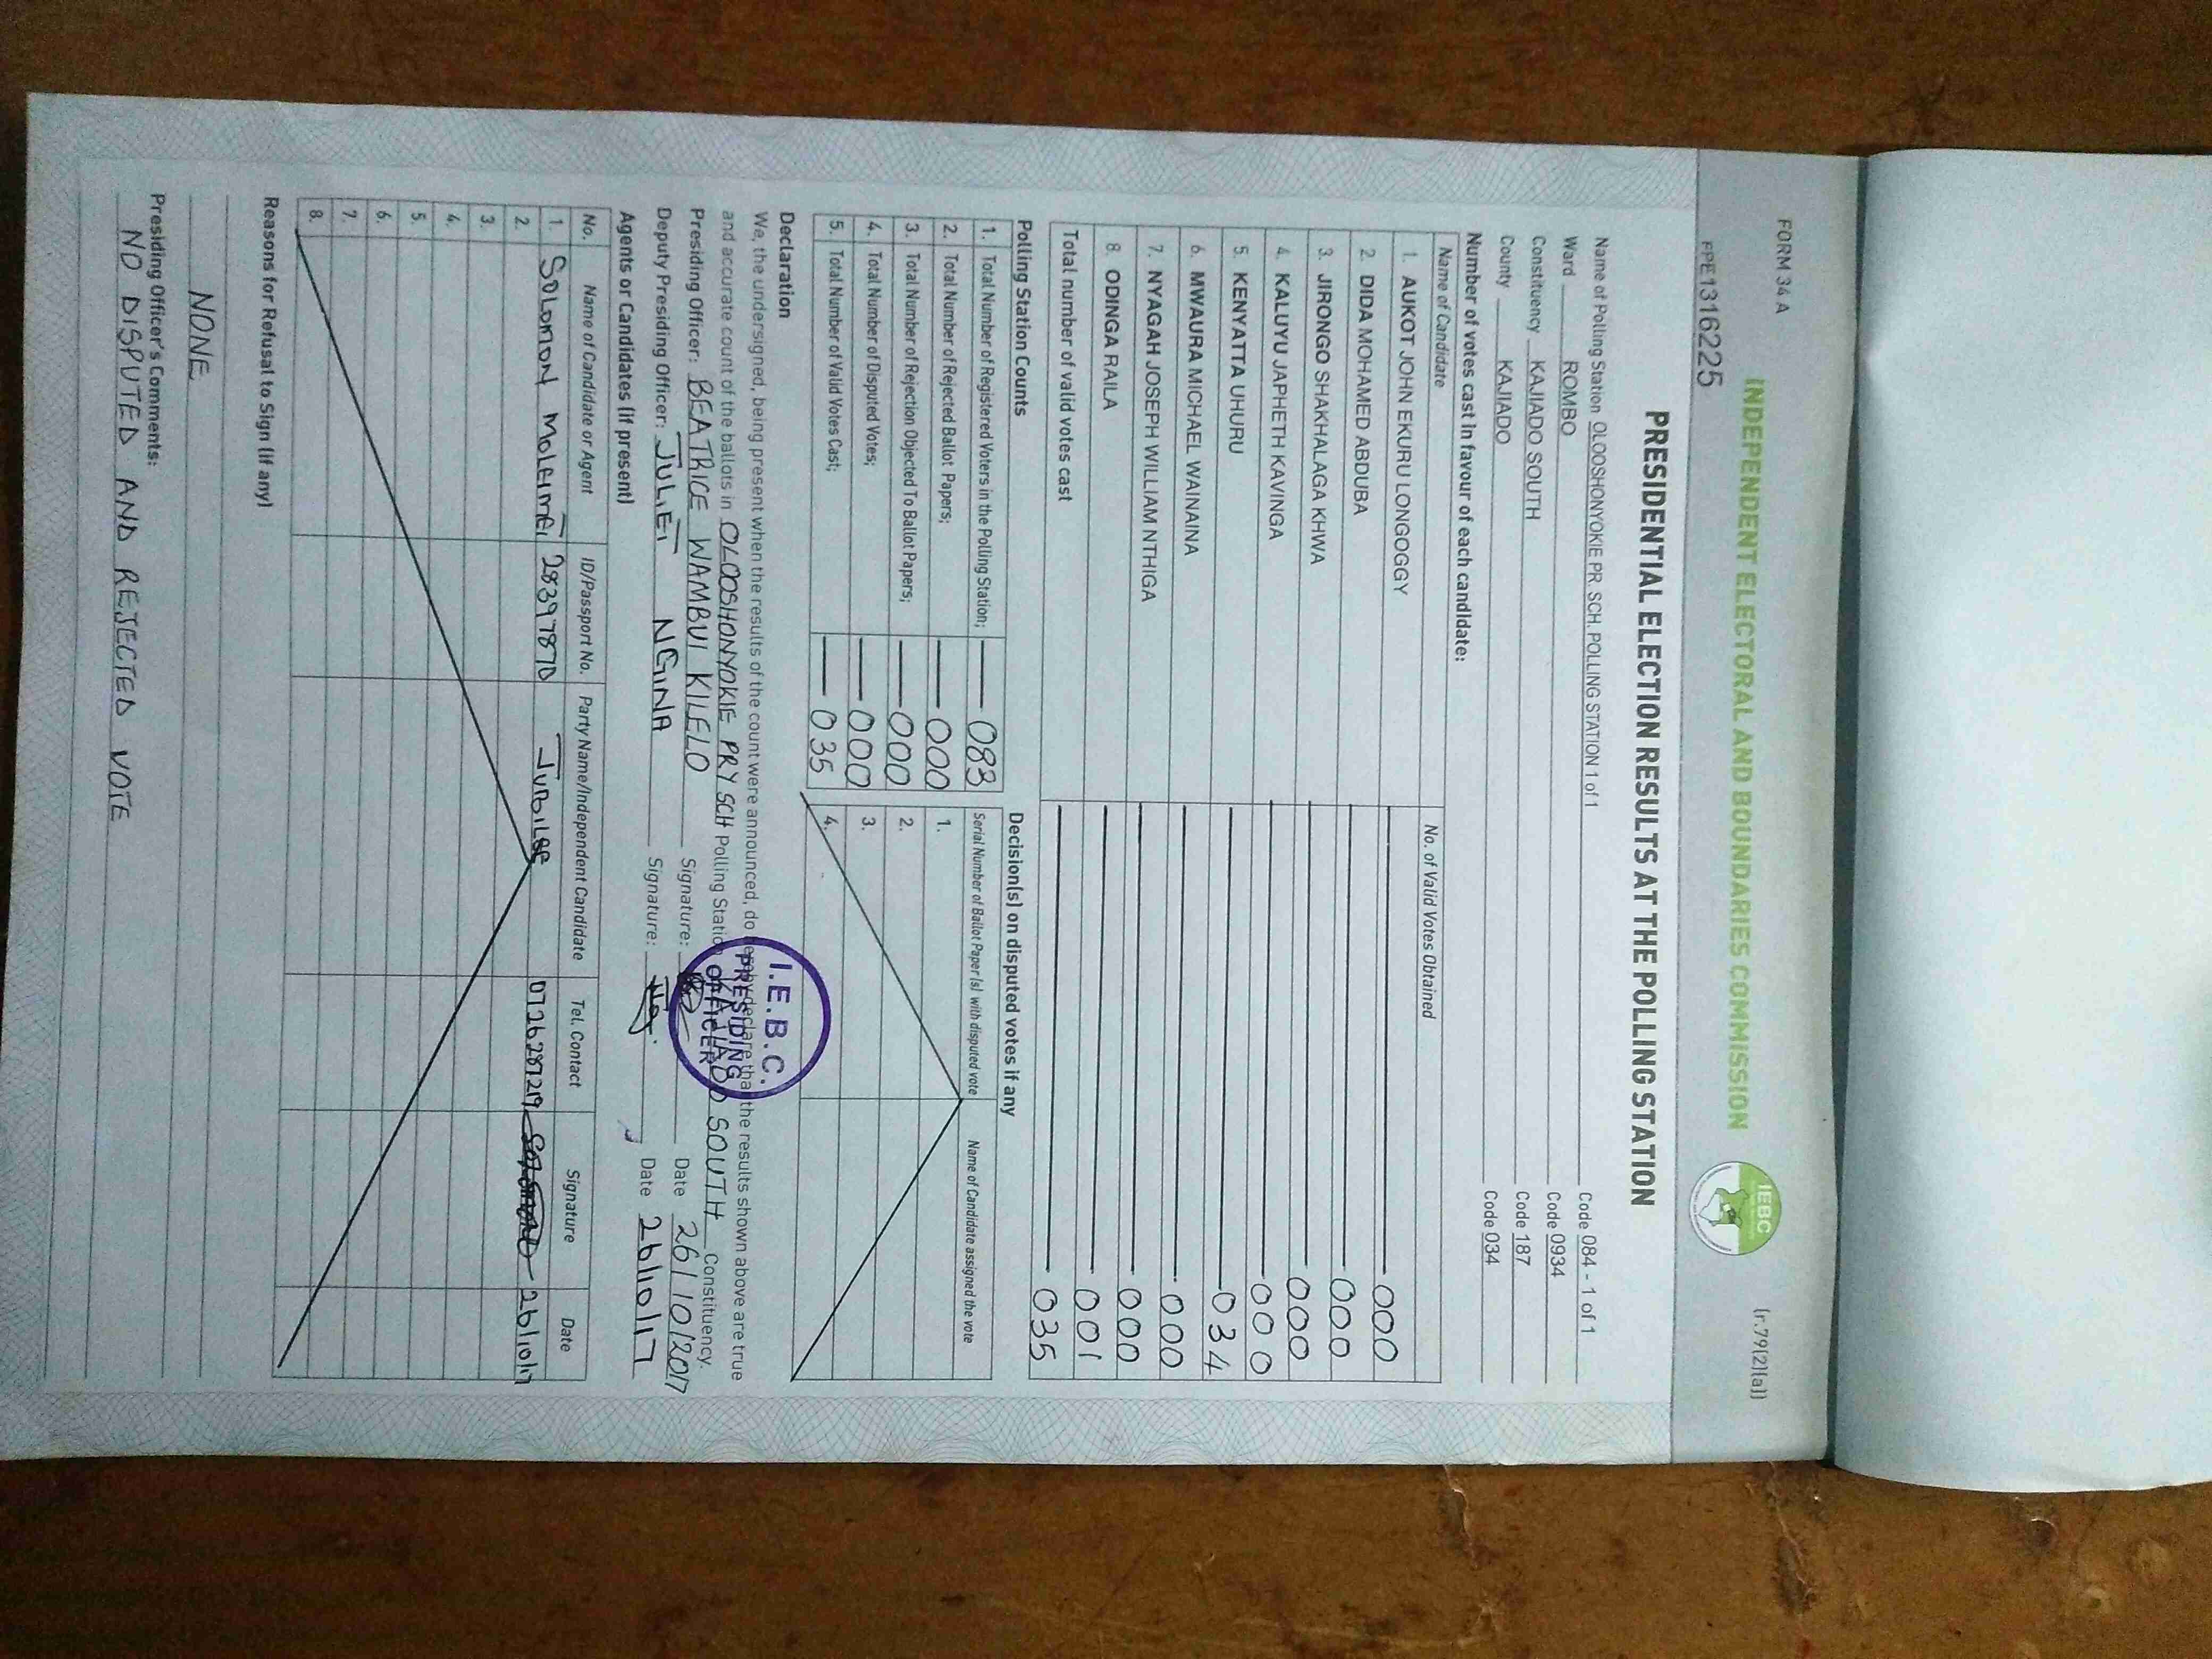 FORM 34 A
(r.79(2)(a))
INDEPENDENT ELECTORAL AND BOUNDARIES COMMISSION
IEBC
PPE1316225
PRESIDENTIAL ELECTION RESULTS AT THE POLLING STATION
Name of Polling Station OLOOSHONYOKIE PR. SCH. POLLING STATION 1 of 1 Code 084 - 1 of 1
Ward ROMBO Code 0934
Constituency KAJIADO SOUTH Code 187
County KAJIADO Code 034
Number of votes cast in favour of each candidate:
Name of Candidate No. of Valid Votes Obtained
1. AUKOT JOHN EKURU LONGOGGY 000
2. DIDA MOHAMED ABDUBA 000
3. JIRONGO SHAKHALAGA KHWA 000
4. KALUYU JAPHETH KAVINGA 000
5. KENYATTA UHURU 034
6. MWAURA MICHAEL WAINAINA 000
7. NYAGAH JOSEPH WILLIAM NTHIGA 000
8. ODINGA RAILA 001
Total number of valid votes cast 035
Polling Station Counts
1. Total Number of Registered Voters in the Polling Station; 083
2. Total Number of Rejected Ballot Papers; 000
3. Total Number of Rejection Objected To Ballot Papers; 000
4. Total Number of Disputed Votes; 000
5. Total Number of Valid Votes Cast; 035
Decision(s) on disputed votes if any
Serial Number of Ballot Paper (s) with disputed vote Name of Candidate assigned the vote
1.
2.
3.
4.
Declaration
We, the undersigned, being present when the results of the count were announced, do hereby declare that the results shown above are true
and accurate count of the ballots in OLOOSHONYOKIE PRY SCH Polling Station KAJIADO SOUTH Constituency.
Presiding Officer: BEATRICE WAMBUI KILELO Signature: Date 26/10/2017
Deputy Presiding Officer: JULIET NGINA Signature: Date 26/10/17
I.E.B.C.
PRESIDING
OFFICER
Agents or Candidates (if present)
No. Name of Candidate or Agent ID/Passport No. Party Name/Independent Candidate Tel. Contact Signature Date
1. SOLOMON 28397870 JUBILEE 0726287219 26/10/17
2.
3.
4.
5.
6.
7.
8.
Reasons for Refusal to Sign (if any)
NONE
Presiding Officer's Comments:
NO DISPUTED AND REJECTED VOTE